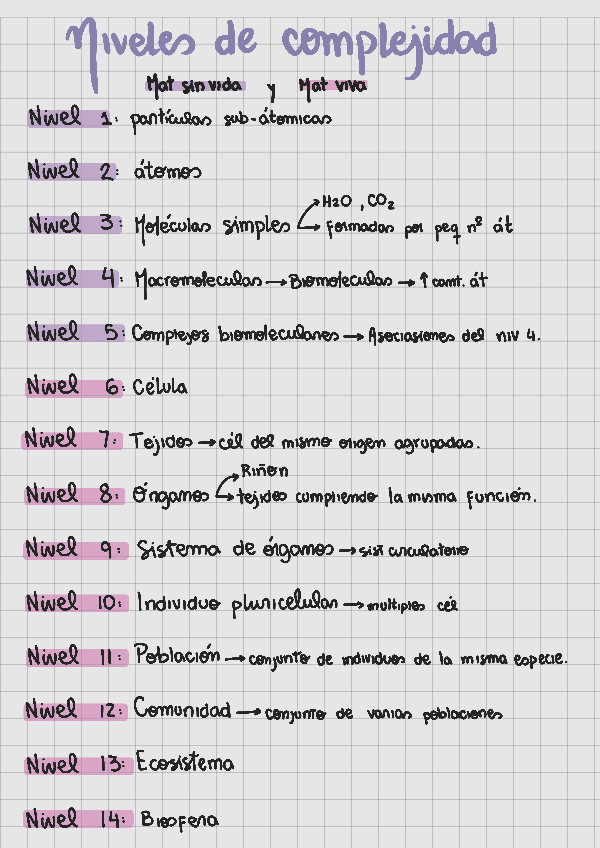 Niveles de complejidad
Mat sin vida y Mat viva
Nivel 1: partículas sub-átomicas
Nivel 2: átomos
H2O, CO2
Nivel 3: Moléculas simples → Formadas por peq nº át
Nivel 4: Macromoleculas → Biomoleculas → ↑ cant. át
Nivel 5: Complejos biomoleculares → Asociasiones del niv 4.
Nivel 6: Célula
Nivel 7: Tejidos → cél del mismo origen agrupadas.
Riñon
Nivel 8: Órganos → tejidos cumpliendo la misma función.
Nivel 9: Sistema de órganos → sist circulatorio
Nivel 10: Individuo pluricelular → multiples cél
Nivel 11: Población → conjunto de individuos de la misma especie.
Nivel 12: Comunidad → conjunto de varias poblaciones
Nivel 13: Ecosistema
Nivel 14: Biosfera